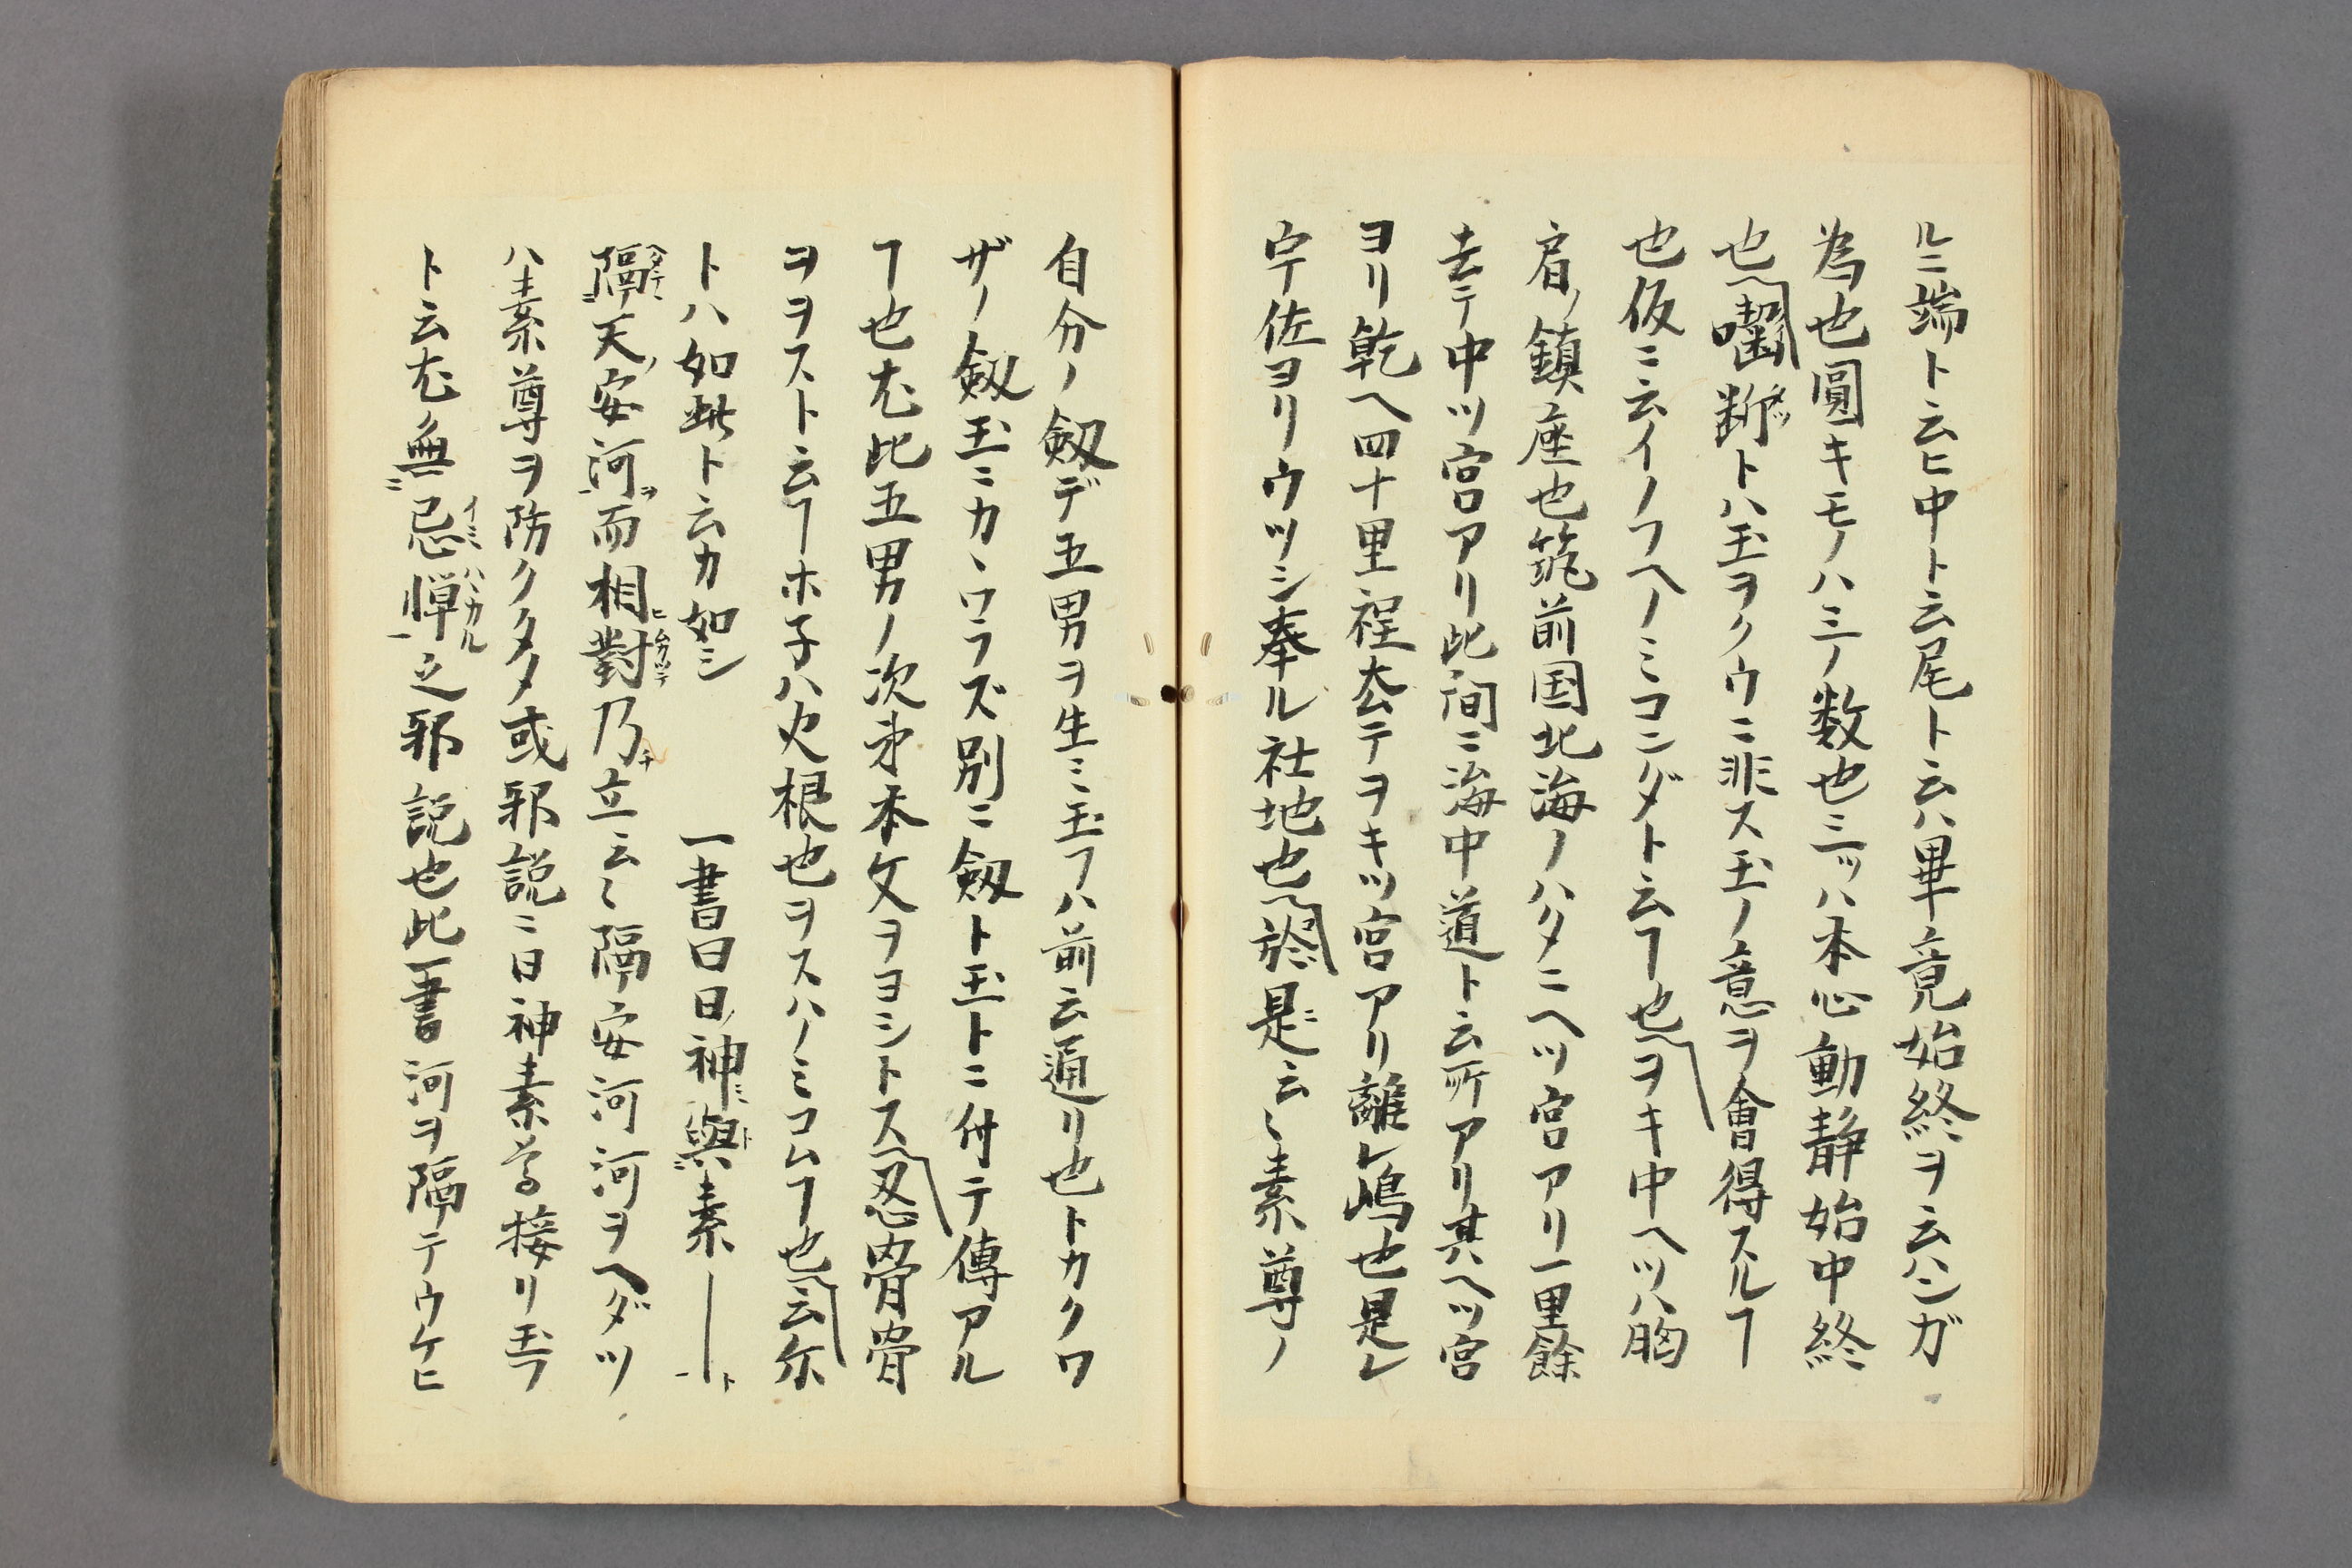 ルニ端ト云ヒ中ト云尾ト云ハ畢竟始終ヲ云ハンガ
為也圓キモノハ三ノ数也三ッハ本心動静始中終
也〽噛断トハ玉ヲクウニ非ス玉ノ意ヲ會得スルヿ
也仮ニ云イノフヘノミコンダト云ヿ也〽ヲキ中ヘツハ胸
肩ノ鎮座也筑前国北海ノハタニヘツ宮アリ一里餘
去テ中ツ宮アリ此間ニ海中道ト云所アリ其ヘツ宮
ヨリ乾ヘ四十里程去テヲキツ宮アリ離レ嶋也是レ
宇佐ヨリウツシ奉ル社地也〽於是云〻素尊ノ
自分ノ劔デ五男ヲ生ミ玉フハ前云通リ也トカクワ
ザノ劔玉ニカヽワラズ別ニ劔ト玉トニ付テ傳アル
ヿ也尤比五男ノ次第本文ヲヨシトス〽忍骨骨
ヲヲストト云ヿホ子ハ火根也ヲスハノミコムヿ也〽云尓
トハ如此ト云カ如シ　一書曰日神與素――ト
隔天安河而相對乃立云〻隔安河河ヲヘダツ
ハ素尊ヲ防クタメ或邪説ニ日神素尊接リ玉フ
ト云尤無忌憚之邪説也比一書河ヲ隔テウケヒ